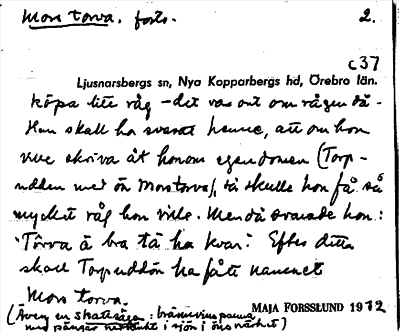 Mors torva. forts. 2.
c37
Ljusnarsbergs sn, Nya Kopparbergs hd, Örebro län.
köpa lite råg – det var ont om rågen då.
Han skall ha svarat henne, att om hon
ville skriva åt honom egendomen (Torp-
udden med ön Morstorva), så skulle hon få så
mycket råg hon ville. Men då svarade hon:
"Tôrva ä bra tä ha kvar." Efter detta
skall Torpuddön ha fått namnet
Mors torva.
MAJA FORSSLUND 1972
(Även en skattsägen: brännvinspanna
med pängar nedsänkt i sjön i öns närhet)